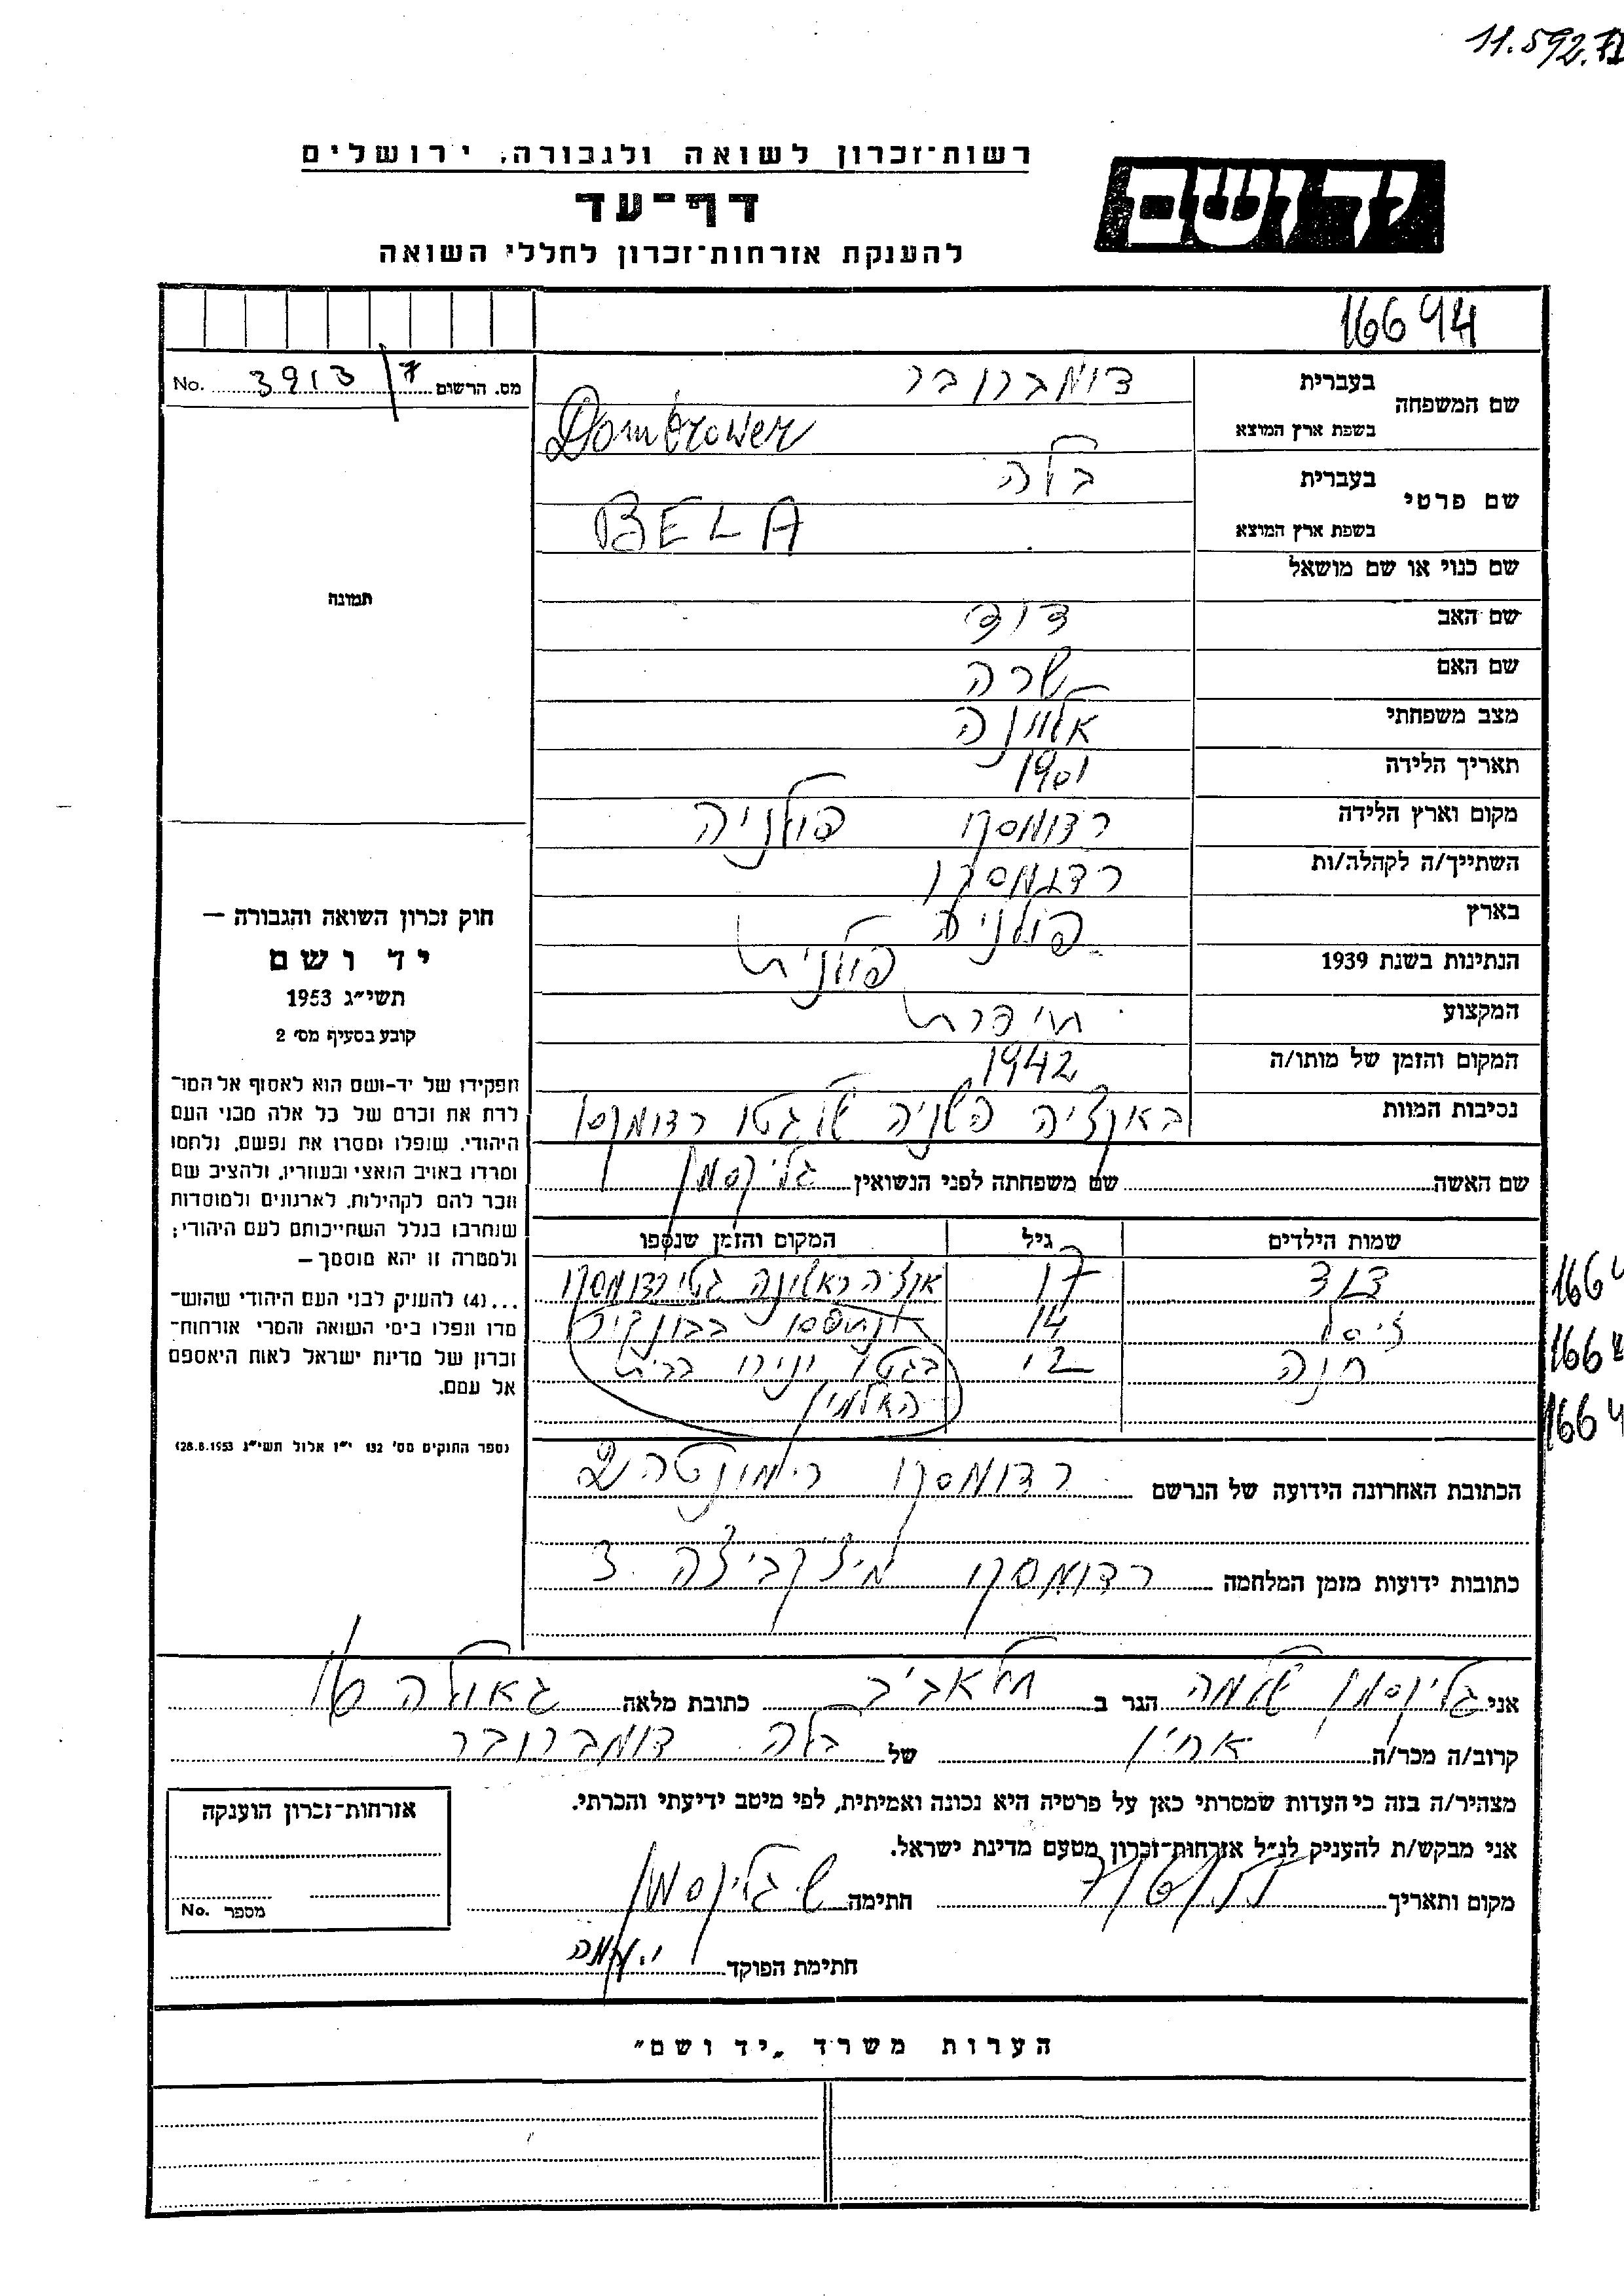 11.592.
רשות־זכרון לשואה ולגבורה, ירושלים
יד ושם
דף־עד
להענקת אזרחות־זכרון לחללי השואה
16694
מס. הרשום 3913/7 No.
שם המשפחה בעברית דומברובר
בשפת ארץ המוצא Dombrower
שם פרטי בעברית בלה
בשפת ארץ המוצא BELA
שם כנוי או שם מושאל
שם האב דוד
שם האם שרה
מצב משפחתי אלמנה
תאריך הלידה 1901
מקום וארץ הלידה רדומסקו פולניה
השתייך/ה לקהלה/ות רדומסקו
בארץ פולניה
הנתינות בשנת 1939 פולנית
המקצוע תופרת
המקום והזמן של מותו/ה 1942
נסיבות המוות באקציה השניה של גטו רדומסקו
שם האשה שם משפחתה לפני הנשואין גליקסמן
שמות הילדים גיל המקום והזמן שנספו
דוד 17 אקציה ראשונה גטו רדומסקו
ציסל 14 נתפסו בבונקיר
חנה 12 בגטו ונורו בבית
האלמין
הכתובת האחרונה הידועה של הנרשם רדומסקו
כתובות ידועות מזמן המלחמה רדומסקו מיצקביצה 3
תמונה
חוק זכרון השואה והגבורה —
יד ושם
תשי״ג 1953
קובע בסעיף מס׳ 2
תפקידו של יד-ושם הוא לאסוף אל המו־
לדת את זכרם של כל אלה מבני העם
היהודי, שנפלו ומסרו את נפשם, נלחמו
ומרדו באויב הנאצי ובעוזריו, ולהציב שם
וזכר להם לקהילות, לארגונים ולמוסדות
שנחרבו בגלל השתייכותם לעם היהודי;
ולמטרה זו יהא מוסמך —
...(4) להעניק לבני העם היהודי שהוש־
מדו ונפלו בימי השואה והמרי אזרחות־
זכרון של מדינת ישראל לאות היאספם
אל עמם.
(ספר החוקים מס׳ 132 י״ז אלול תשי״ג 28.8.1953)
אני גליקסמן שלמה הגר ב תל אביב כתובת מלאה גאולה
קרוב/ה מכר/ה אחין של בלה דומברובר
מצהיר/ה בזה כי העדות שמסרתי כאן על פרטיה היא נכונה ואמיתית, לפי מיטב ידיעתי והכרתי.
אני מבקש/ת להעניק לנ״ל אזרחות־זכרון מטעם מדינת ישראל.
מקום ותאריך חתימה ש גליקסמן
חתימת הפוקד
אזרחות־זכרון הוענקה
מספר No.
הערות משרד „יד ושם״